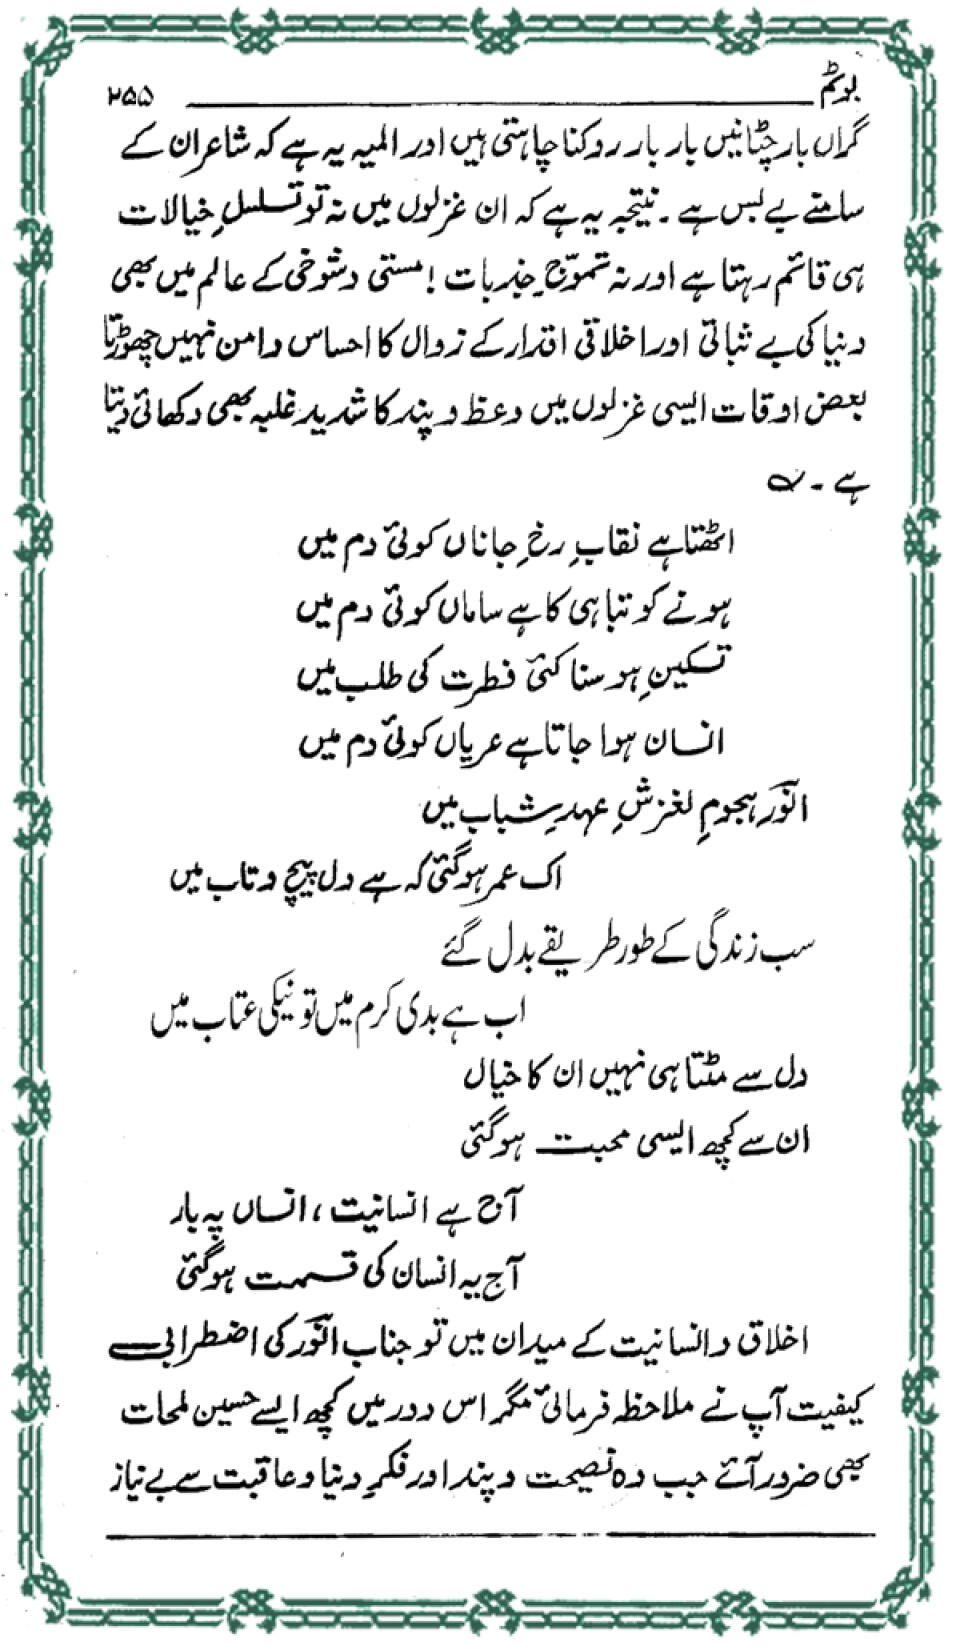 بوئم ۲۵۵
گراں بار چٹانیں بار بار روکنا چاہتی ہیں اور المیہ یہ ہے کہ شاعر ان کے
سامنے بے بس ہے ۔ نتیجہ یہ ہے کہ ان غزلوں میں نہ تو تسلسلِ خیالات
ہی قائم رہتا ہے اور نہ تموّجِ جذبات ! مستی و شوخی کے عالم میں بھی
دنیا کی بے ثباتی اور اخلاقی اقدار کے زوال کا احساس دامن نہیں چھوڑتا
بعض اوقات ایسی غزلوں میں وعظ و پند کا شدید غلبہ بھی دکھائی دیتا
ہے ۔ ؎
اٹھتا ہے نقابِ رخِ جاناں کوئی دم میں
ہونے کو تباہی کا ہے ساماں کوئی دم میں
تسکینِ ہوسناکئ فطرت کی طلب میں
انسان ہوا جاتا ہے عریاں کوئی دم میں
انوؔر ہجومِ لغزشِ عہدِ شباب میں
اک عمر ہوگئی کہ ہے دل پیچ و تاب میں
سب زندگی کے طور طریقے بدل گئے
اب ہے بدی کرم میں تو نیکی عتاب میں
دل سے مٹتا ہی نہیں ان کا خیال
ان سے کچھ ایسی محبت ہوگئی
آج ہے انسانیت ، انساں پہ بار
آج یہ انسان کی قسمت ہوگئی
اخلاق و انسانیت کے میدان میں تو جناب انوؔر کی اضطرابی
کیفیت آپ نے ملاحظہ فرمائی مگر اس دور میں کچھ ایسے حسین لمحات
بھی ضرور آئے جب وہ نصیحت و پند اور فکرِ دنیا و عاقبت سے بے نیاز